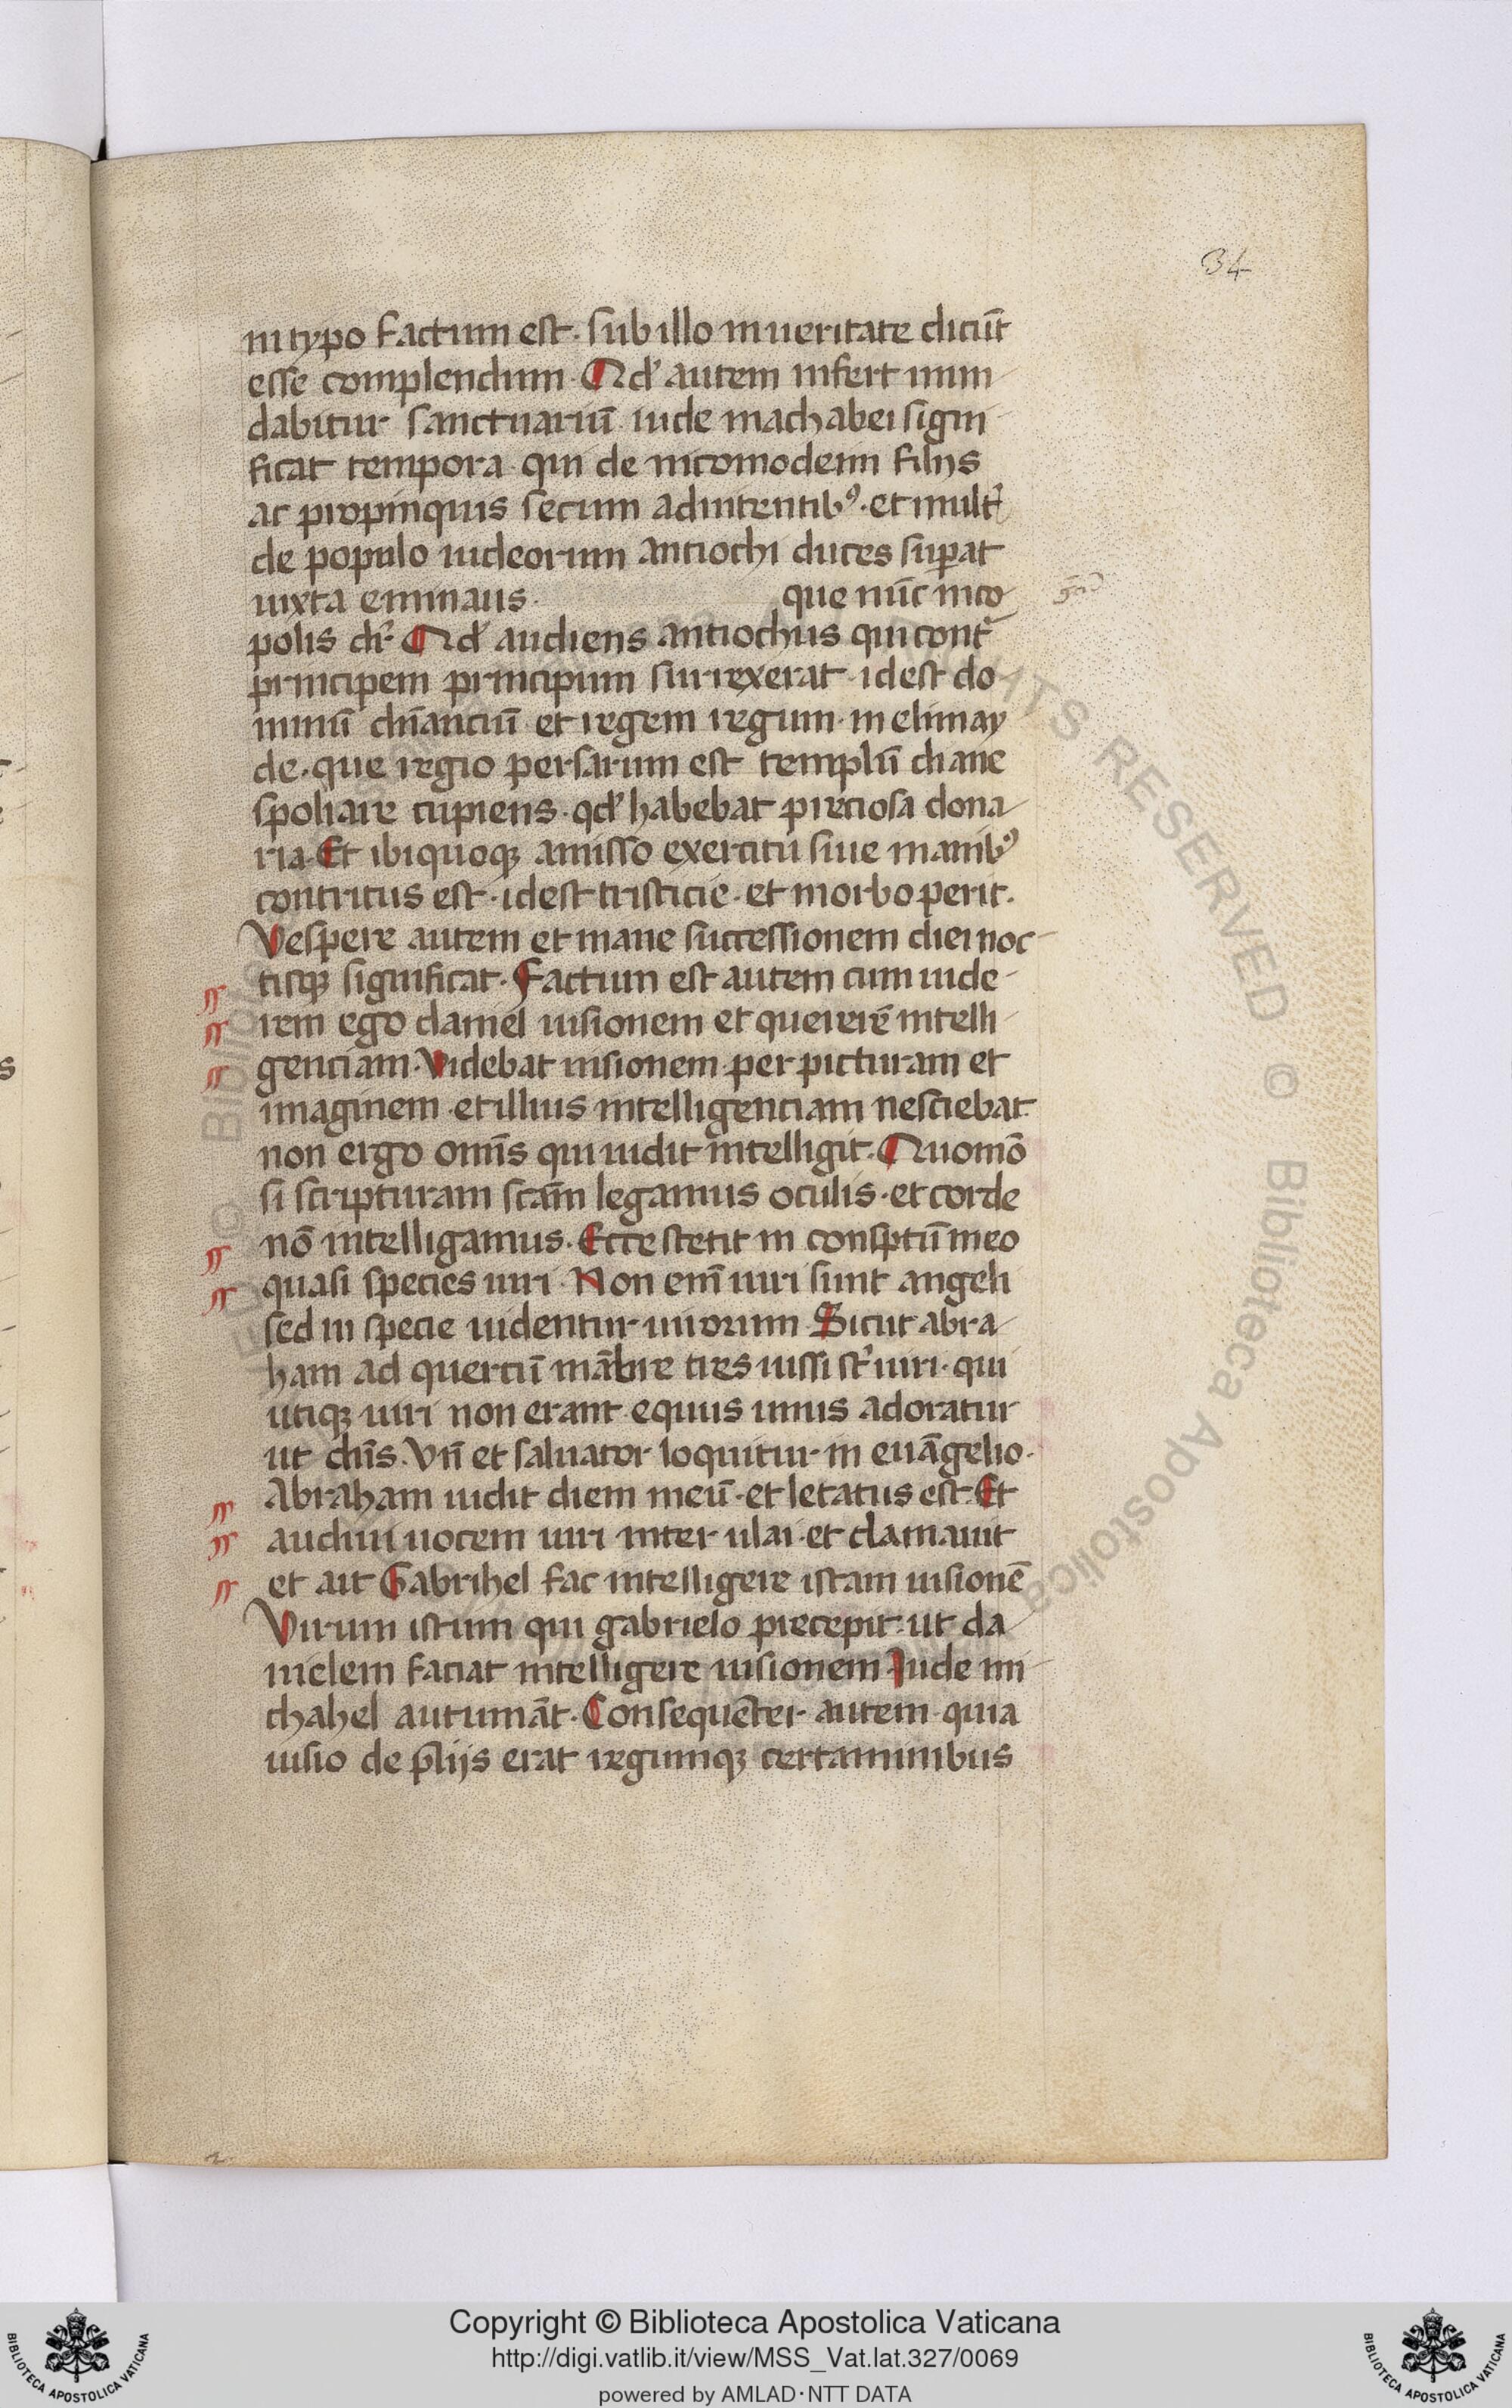 34
in typo factum est. sub illo in ueritate dicūt
esse complendum. Qd' autem infert mun
dabitur sanctuariū. iude machabei signi
ficat tempora. qui de nicomodeim filijs
ac propinquis secum adnitentib⁹. et mult'
de populo iudeorum antiochi duces supat
iuxta emmaus. que nūc nico
polis dr̄. Qd' audiens antiochus qui cont^a
principem principum surrexerat. idest do
minū dn̄anciū et regem regum. in elimay
de. que regio persarum est templū diane
spoliare cupiens. qd' habebat preciosa dona
ria. Et ibi quoqꝫ amisso exercitu siue manib⁹
contritus est. idest tristicie. et morbo perit.
Vespere autem et mane successionem diei noc
tisqꝫ significat. Factum est autem cum uide
rem ego daniel uisionem et quererē intelli
genciam. Videbat uisionem per picturam et
imaginem. et illius intelligenciam nesciebat
non ergo omīs qui uidit intelligit. Quomō
si scripturam scām legamus oculis. et corde
nō intelligamus. Ecce stetit in consptū meo
quasi species uiri. Non enī uiri sunt angeli
sed in specie uidentur uirorum. Sicut abra
ham ad quercū mābre tres iussi st' uiri. qui
utiqꝫ uiri non erant equus unus adoratur
ut dn̄s. Vn̄ et saluator loquitur in euāgelio.
Abraham uidit diem meū. et letatus est. Et
audiui uocem uiri inter ulai. et clamauit
et ait Gabrihel fac intelligere istam uisionē
Virum istum qui gabrielo precepit. ut da
nielem faciat intelligere uisionem. Iude mi
chahel autumāt. Consequēter autem quia
uisio de p̄lijs erat regumqꝫ certaminibus
Copyright © Biblioteca Apostolica Vaticana
http://digi.vatlib.it/view/MSS_Vat.lat.327/0069
powered by AMLAD·NTT DATA